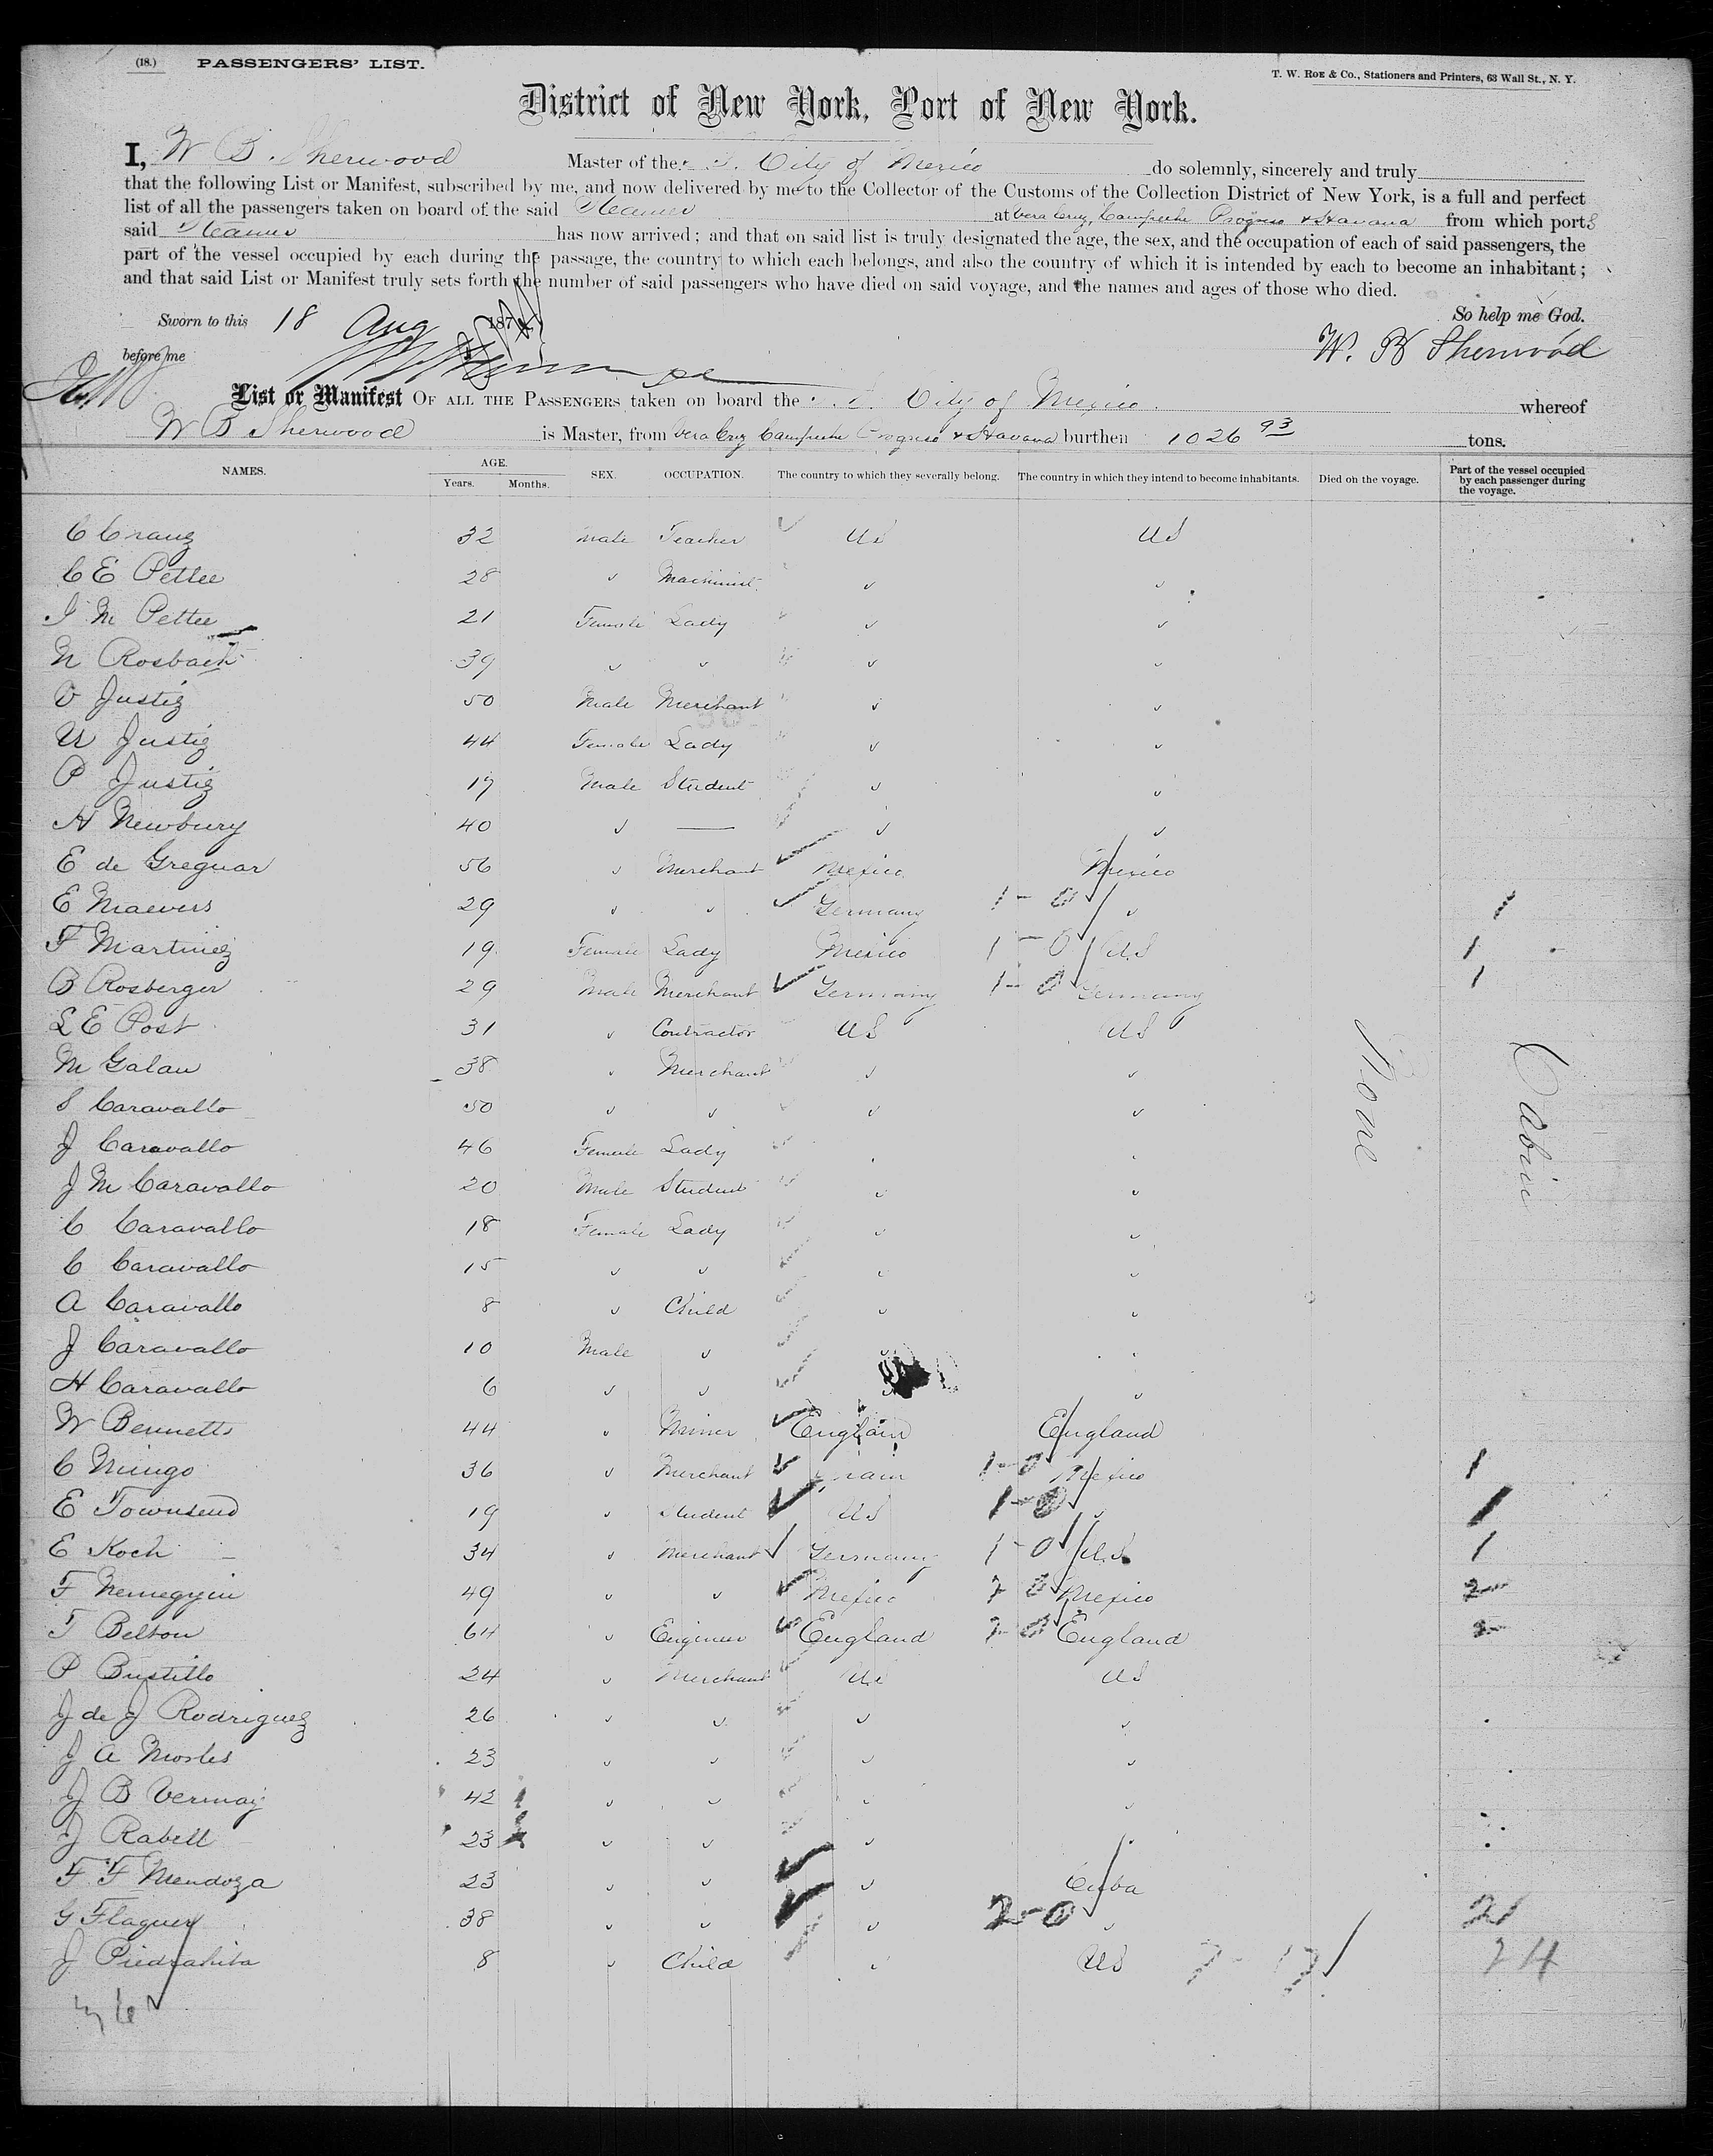 (18.) PASSENGERS' LIST.
T. W. ROE & Co., Stationers and Printers, 63 Wall St., N. Y.
District of New York, Port of New York.
I, W B Sherwood Master of the S. S. City of Mexico do solemnly, sincerely and truly
that the following List or Manifest, subscribed by me, and now delivered by me to the Collector of the Customs of the Collection District of New York, is a full and perfect
list of all the passengers taken on board of the said Steamer at Vera Cruz, Campeche Progreso & Havana from which ports
said Steamer has now arrived; and that on said list is truly designated the age, the sex, and the occupation of each of said passengers, the
part of the vessel occupied by each during the passage, the country to which each belongs, and also the country of which it is intended by each to become an inhabitant;
and that said List or Manifest truly sets forth the number of said passengers who have died on said voyage, and the names and ages of those who died.
Sworn to this 18 Aug 187 So help me God.
before me W. B Sherwood
List or Manifest OF ALL THE PASSENGERS taken on board the S. S. City of Mexico whereof
W B Sherwood is Master, from Vera Cruz Campeche Progreso & Havana burthen 1026 93 tons.
NAMES. AGE. Years. Months. SEX. OCCUPATION. The country to which they severally belong. The country in which they intend to become inhabitants. Died on the voyage. Part of the vessel occupied by each passenger during the voyage.
C Cranz 32 Male Teacher US US
C E Pettee 28 " Machinist " "
I M Pettee 21 Female Lady " "
N Rosbach 39 " " " "
V Justiz 50 Male Merchant " "
U Justiz 44 Female Lady " "
P Justiz 17 Male Student " "
H Newbury 40 " — " "
E de Greguar 56 " Merchant Mexico Mexico
E Maevers 29 " " Germany 1-0 " 1
F Martinez 19 Female Lady Mexico 1-0 U.S 1
B Rosberger 29 Male Merchant Germany 1-0 Germany 1
L E Post 31 " Contractor US US
M Galau 38 " Merchant " "
S Caravallo 50 " " " "
J Caravallo 46 Female Lady " "
J M Caravallo 20 Male Student " "
C Caravallo 18 Female Lady " "
C Caravallo 15 " " " "
A Caravallo 8 " Child " "
J Caravallo 10 Male " " "
H Caravallo 6 " " "
None
Cabin
W Bennetts 44 " Miner England
C Mungo 36 " Merchant 1-0 Mexico 1
E Townsend 19 " Student US 1-0 " 1
E Koch 34 " Merchant Germany 1-0 U.S. 1
F Nemegyin 49 " " Mexico 2 0 Mexico 2
T Belton 64 " Engineer England 2-0 England 2
P Bustillo 24 " Merchant US US
J de J Rodriguez 26 " " " "
J A Morles 23 " " " "
J B Vermay 42 " " " "
J Rabell 23 " " " "
F F Mendoza 23 " " " Cuba
G Flaquer 38 " " " 2-0 " 2
J Piedrahita 8 " Child " US 7-17 24
36